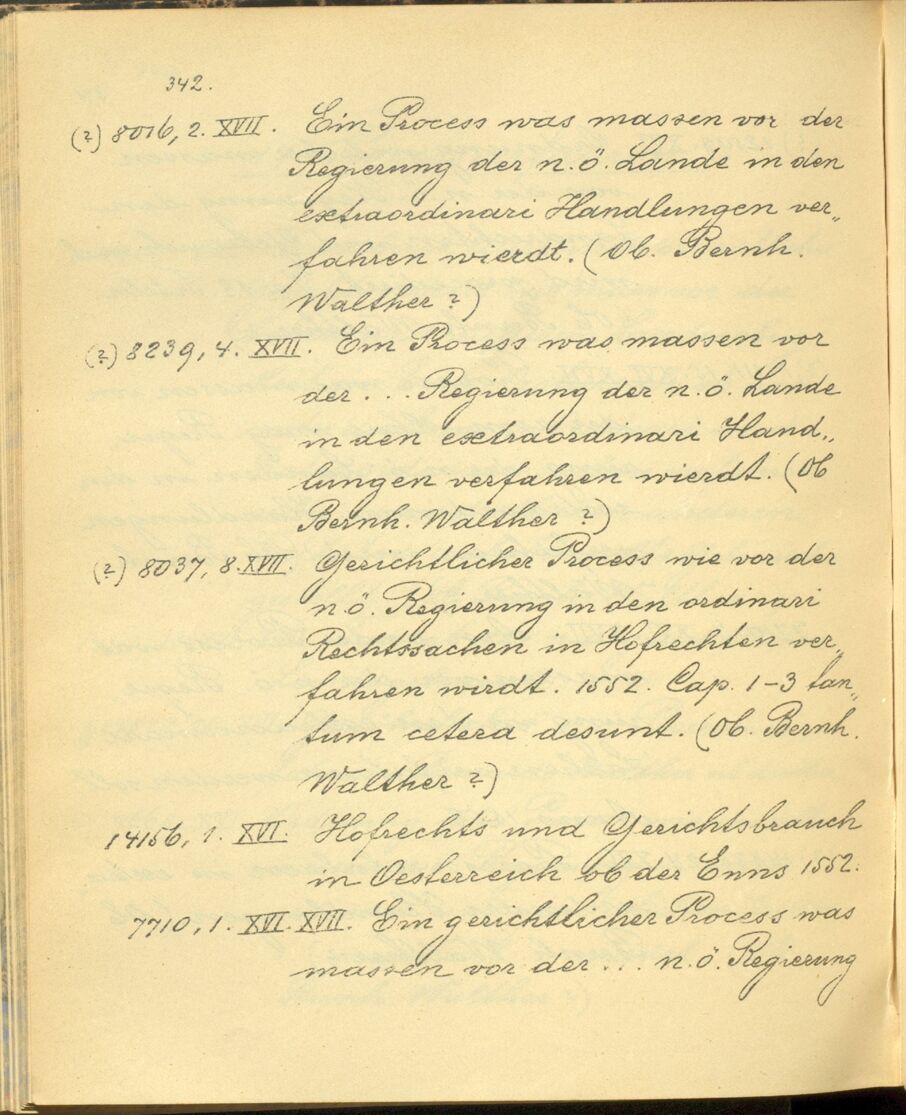 342.
(?) 8016, 2. XVII. Ein Process was massen vor der
Regierung der n. ö. Lande in den
extraordinari Handlungen ver„
fahren wierdt. (Ob. Bernh.
Walther ?)
(?) 8239, 4. XVII. Ein Process was massen vor
der ... Regierung der n. ö. Lande
in den extraordinari Hand„
lungen verfahren wierdt. (Ob
Bernh. Walther ?)
(?) 8037, 8. XVII. Gerichtlicher Process wie vor der
n. ö. Regierung in den ordinari
Rechtssachen in Hofrechten ver„
fahren wirdt. 1552. Cap. 1-3 tan„
tum cetera desunt. (Ob. Bernh.
Walther ?)
14156, 1. XVI. Hofrechts und Gerichtsbrauch
in Oesterreich ob der Enns 1552.
7710, 1. XVI. XVII. Ein gerichtlicher Process was
massen vor der ... n. ö. Regierung